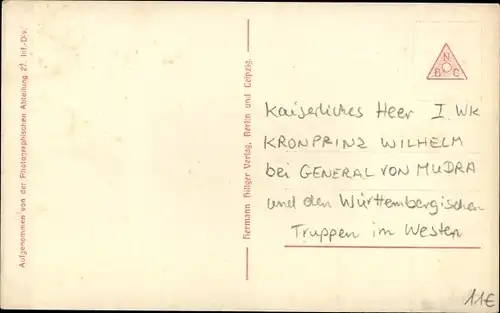 Aufgenommen von der Photographischen Abteilung 27. Inf.-Div.
Hermann Hillger Verlag, Berlin und Leipzig.
N
B C
Kaiserliches Heer I. WK
KRONPRINZ WILHELM
bei GENERAL VON MUDRA
und den Württembergischen
Truppen im Westen
11€